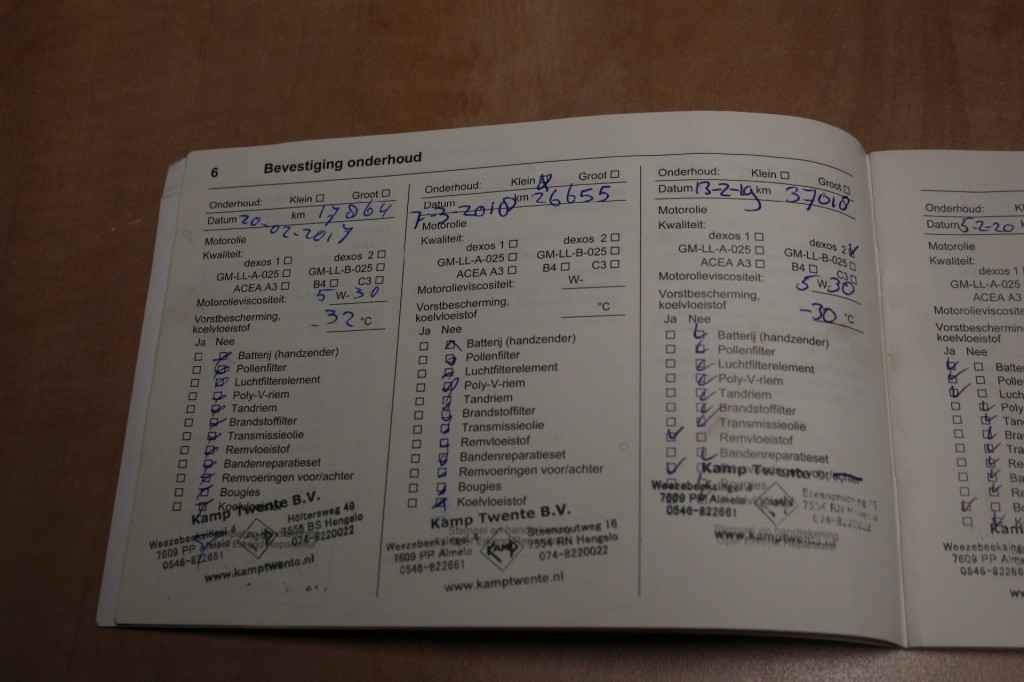 6 Bevestiging onderhoud
Onderhoud: Klein Groot
Datum 20-02-2017 km 17864
Motorolie
Kwaliteit:
dexos 1 dexos 2
GM-LL-A-025 GM-LL-B-025
ACEA A3 B4 C3
Motorolieviscositeit: 5 W-30
Vorstbescherming,
koelvloeistof -32 °C
Ja Nee
Batterij (handzender)
Pollenfilter
Luchtfilterelement
Poly-V-riem
Tandriem
Brandstoffilter
Transmissieolie
Remvloeistof
Bandenreparatieset
Remvoeringen voor/achter
Bougies
Koelvloeistof
Kamp Twente B.V.
Weezebeeksingel 4 Höltersweg 40
7609 PP Almelo 7556 BS Hengelo
0546-822661 074-8220022
www.kamptwente.nl
Onderhoud: Klein Groot
Datum 7-3-2018 km 26655
Motorolie
Kwaliteit:
dexos 1 dexos 2
GM-LL-A-025 GM-LL-B-025
ACEA A3 B4 C3
Motorolieviscositeit: W-
Vorstbescherming,
koelvloeistof °C
Ja Nee
Batterij (handzender)
Pollenfilter
Luchtfilterelement
Poly-V-riem
Tandriem
Brandstoffilter
Transmissieolie
Remvloeistof
Bandenreparatieset
Remvoeringen voor/achter
Bougies
Koelvloeistof
Kamp Twente B.V.
Weezebeeksingel 4 Steenzoutweg 16
7609 PP Almelo KAMP 7554 RN Hengelo
0546-822661 074-8220022
www.kamptwente.nl
Onderhoud: Klein Groot
Datum 13-2-19 km 37018
Motorolie
Kwaliteit:
dexos 1 dexos 2
GM-LL-A-025 GM-LL-B-025
ACEA A3 B4 C3
Motorolieviscositeit: 5 W-30
Vorstbescherming,
koelvloeistof -30 °C
Ja Nee
Batterij (handzender)
Pollenfilter
Luchtfilterelement
Poly-V-riem
Tandriem
Brandstoffilter
Transmissieolie
Remvloeistof
Bandenreparatieset
Kamp Twente
Weezebeeksingel 4 Steenzoutweg 16
7609 PP Almelo 7554 RN
0546-822661 074-8220022
www.kamptwente.nl
Onderhoud: Kl
Datum 5-2-20
Motorolie
Kwaliteit:
dexos 1
GM-LL-A-025
ACEA A3
Motorolieviscosite
Vorstbescherming
koelvloeistof
Ja Nee
Batte
Polle
Lucht
Poly
Tan
Bra
Tra
Re
Ba
Re
B
K
Kam
Weezebeeksingel
7609 PP Almelo
0546-822661